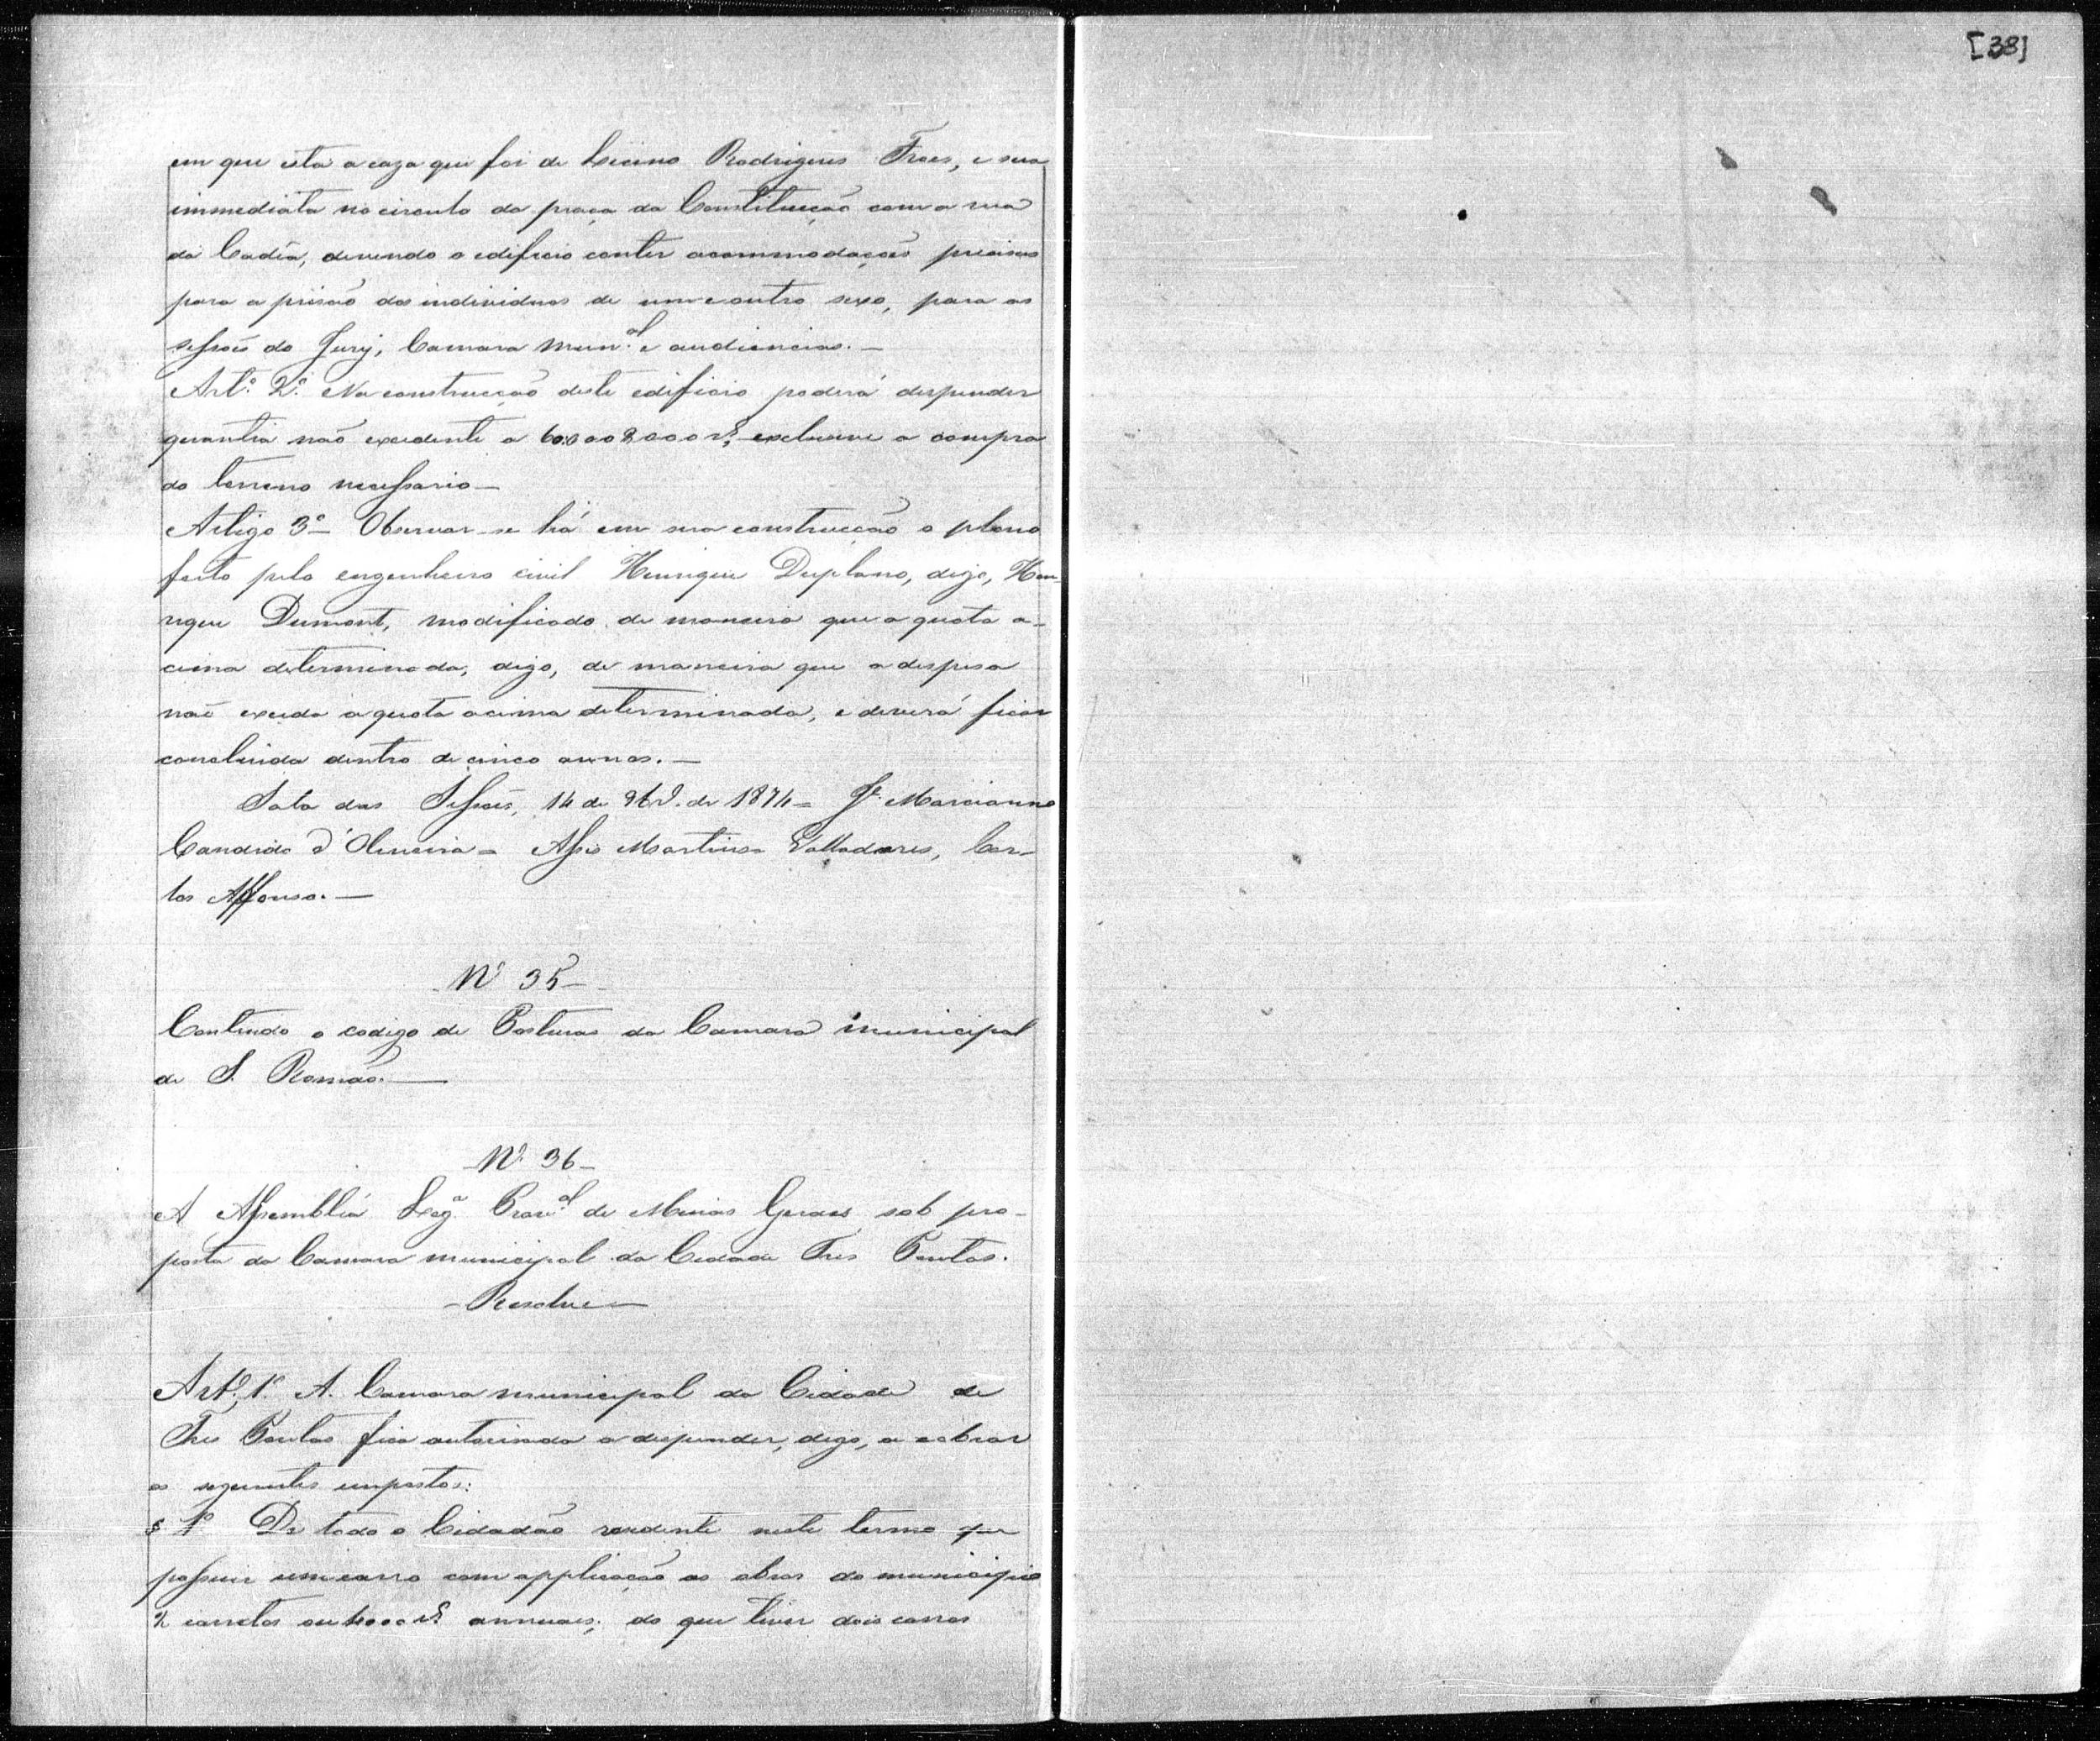 [38]
em que está a caza que foi de Rodrigues Froes, e sua
immediata no circulo da praça da Constituição com a rua
da Cadêa, devendo o edificio conter acommodações precisas
para a prisão dos individuos de um e outro sexo, para as
sessões do Jury, Camara Mun.al e audiencias. —
Art.º 2.º Na construcção deste edificio poderá despender
quantia não excedente a 60:000$000 rs, exclusive a compra
do terreno necessario —
Artigo 3º — Observar-se há em sua construcção o plano
feito pelo engenheiro civil Henrique Duplano, digo, Hen-
rique Dumont, modificado de maneira que a quota a-
cima determinada, digo, de maneira que a despesa
não exceda a quota acima determinada, e deverá ficar
concluida dentro de cinco annos. —
Sala das Sessões, 14 de de 1874 = Marcianno
Candido d'Oliveira = Assis Martins = Valladares, Car-
los Affonso. —
Nº 35 —
Contendo o codigo de Posturas da Camara municipal
de S. Romão. —
Nº 36 —
A Assembléa Leg.a Prov.al de Minas Geraes sob pro-
posta da Camara municipal da Cidade Tres Pontas.
— Resolve —
Artº 1º A Camara municipal da Cidade de
Tres Pontas fica autorisada a despender, digo, a cobrar
os seguintes impostos:
§ 1º De todo o Cidadão residente neste termo que
possuir um carro com applicação as obras do municipio
2 carretos ou 4000 rs annuaes; do que tiver dois carros